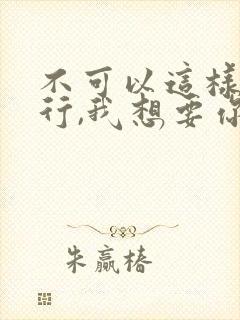 不可以這樣
行,我想要你
朱贏椿